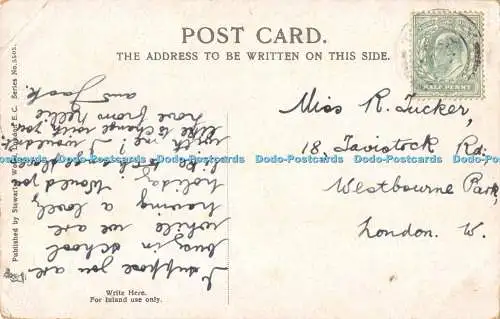 POST CARD.
THE ADDRESS TO BE WRITTEN ON THIS SIDE.
HALF PENNY
Miss R. Tucker,
18, Tavistock Rd.
Westbourne Park,
London. W.
I suppose you are
busy in school
while we are
having a lovely
holiday. Would you
like to change
with me? I wouldn't
like to change with you.
love from Nellie
and Jack.
Write Here.
For Inland use only.
Published by Stewart & Woolf, London, E.C. Series No. 5505.
Dodo-Postcards Dodo-Postcards Dodo-Postcards Dodo-Postcards Dodo-Postcards